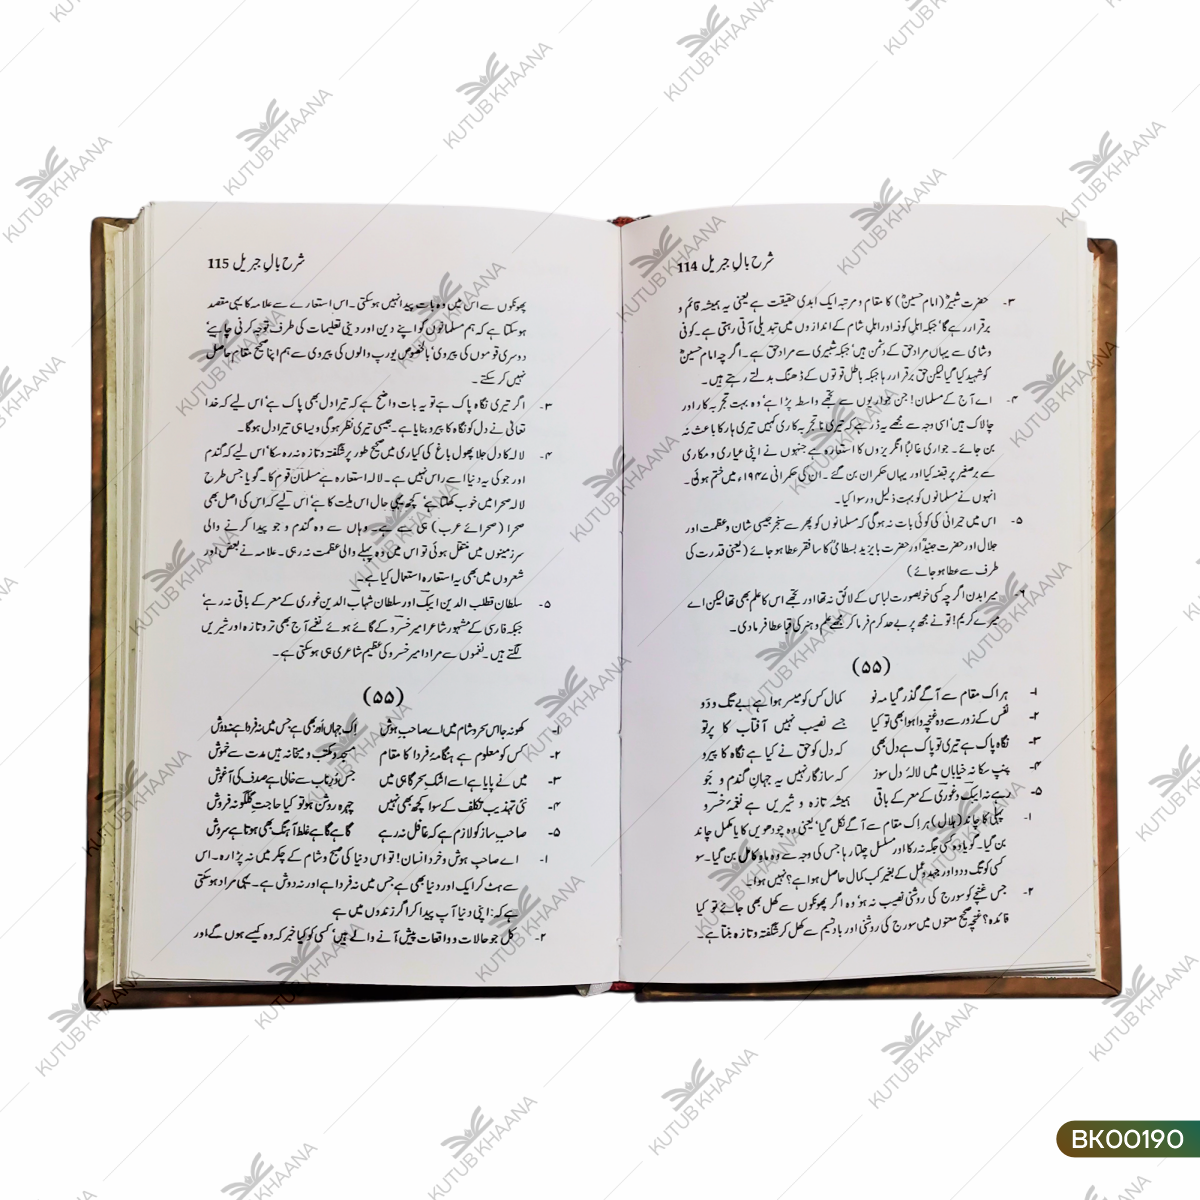 شرح بالِ جبریل 114
۳۔ حضرت شبیرؓ (امام حسینؓ) کا مقام و مرتبہ ایک ابدی حقیقت ہے یعنی یہ ہمیشہ قائم و
برقرار رہے گا‘ جبکہ اہلِ کوفہ اور اہلِ شام کے اندازوں میں تبدیلی آتی رہتی ہے۔ کوفی
و شامی سے یہاں مراد حق کے دشمن ہیں‘ جبکہ شبیری سے مراد حق ہے۔ اگرچہ امام حسینؓ
کو شہید کیا گیا لیکن حق برقرار رہا جبکہ باطل قوتوں کے ڈھنگ بدلتے رہتے ہیں۔
۴۔ اے آج کے مسلمان! جن جواریوں سے تجھے واسطہ پڑا ہے‘ وہ بہت تجربہ کار اور
چالاک ہیں‘ اسی وجہ سے مجھے یہ ڈر ہے کہ تیری ناتجربہ کاری کہیں تیری ہار کا باعث نہ
بن جائے۔ جواری غالباً انگریزوں کا استعارہ ہے جنہوں نے اپنی عیاری و مکاری
سے برصغیر پر قبضہ کیا اور یہاں حکمران بن گئے۔ ان کی حکمرانی ۱۹۴۷ء میں ختم ہوئی۔
انہوں نے مسلمانوں کو بہت ذلیل و رسوا کیا۔
۵۔ اس میں حیرانی کی کوئی بات نہ ہوگی کہ مسلمانوں کو پھر سے سنجر جیسی شان و عظمت اور
جلال اور حضرت جنیدؒ اور حضرت بایزید بسطامیؒ کا سا فقر عطا ہو جائے (یعنی قدرت کی
طرف سے عطا ہو جائے)
۶۔ میرا بدن اگرچہ کسی خوبصورت لباس کے لائق نہ تھا اور تجھے اس کا علم بھی تھا لیکن اے
میرے کریم! تو نے مجھ پر بے حد کرم فرما کر مجھے علم و ہنر کی قبا عطا فرما دی۔
(۵۵)
۱۔ ہر اک مقام سے آگے گذر گیا مہِ نو کمال کس کو میسر ہوا ہے بے تگ و دَو
۲۔ نفس کے زور سے وہ غنچہ وا ہوا بھی تو کیا جسے نصیب نہیں آفتاب کا پرتو
۳۔ نگاہ پاک ہے تیری تو پاک ہے دل بھی کہ دل کو حق نے کیا ہے نگاہ کا پیرو
۴۔ پنپ سکا نہ خیاباں میں لالۂ دل سوز کہ سازگار نہیں یہ جہانِ گندم و جَو
۵۔ رہے نہ ایبک و غوری کے معرکے باقی ہمیشہ تازہ و شیریں ہے نغمۂ خسرو
۱۔ پہلی کا چاند (ہلال) ہر اک مقام سے آگے نکل گیا‘ یعنی وہ چودھویں کا یا مکمل چاند
بن گیا۔ گویا وہ کسی جگہ نہ رکا اور مسلسل چلتا رہا جس کی وجہ سے وہ ماہِ کامل بن گیا۔ سو
کسی کو تگ و دو اور جہد و عمل کے بغیر کب کمال حاصل ہوا ہے؟ نہیں ہوا۔
۲۔ جس غنچے کو سورج کی روشنی نصیب نہ ہو‘ وہ اگر پھونکوں سے کھل بھی جائے تو کیا
فائدہ؟ غنچہ صحیح معنوں میں سورج کی روشنی اور بادِ نسیم سے کھل کر شگفتہ و تازہ بنتا ہے۔
شرح بالِ جبریل 115
پھونکوں سے اس میں وہ بات پیدا نہیں ہو سکتی۔ اس استعارے سے علامہ کا یہی مقصد
ہو سکتا ہے کہ ہم مسلمانوں کو اپنے دین اور دینی تعلیمات کی طرف توجہ کرنی چاہیے‘
دوسری قوموں کی پیروی‘ بالخصوص یورپ والوں کی پیروی سے ہم اپنا صحیح مقام حاصل
نہیں کر سکتے۔
۳۔ اگر تیری نگاہ پاک ہے تو یہ بات واضح ہے کہ تیرا دل بھی پاک ہے‘ اس لیے کہ خدا
تعالیٰ نے دل کو نگاہ کا پیرو بنایا ہے۔ جیسی تیری نظر ہو گی ویسا ہی تیرا دل ہو گا۔
۴۔ لالہ کا دل جلا پھول باغ کی کیاری میں صحیح طور پر شگفتہ و تازہ نہ رہ سکا‘ اس لیے کہ گندم
اور جو کی یہ دنیا اسے راس نہیں ہے۔ لالہ استعارہ ہے مسلمان قوم کا۔ گویا جس طرح
لالہ صحرا میں خوب کھلتا ہے‘ کچھ یہی حال اس ملت کا ہے‘ اس لیے کہ اس کی اصل بھی
صحرا (صحرائے عرب) ہی سے ہے۔ وہاں سے وہ گندم و جو پیدا کرنے والی
سرزمینوں میں منتقل ہوئی تو اس میں وہ پہلے والی عظمت نہ رہی۔ علامہ نے بعض اور
شعروں میں بھی یہ استعارہ استعمال کیا ہے۔
۵۔ سلطان قطب الدین ایبک اور سلطان شہاب الدین غوری کے معرکے باقی نہ رہے‘
جبکہ فارسی کے مشہور شاعر امیر خسرو کے گائے ہوئے نغمے آج بھی تر و تازہ اور شیریں
لگتے ہیں۔ نغموں سے مراد امیر خسرو کی عظیم شاعری ہی ہو سکتی ہے۔
(۵۵)
۱۔ کھو نہ جا اس سحر و شام میں اے صاحبِ ہوش اک جہاں اور بھی ہے جس میں نہ فردا ہے نہ دوش
۲۔ کس کو معلوم ہے ہنگامۂ فردا کا مقام مسجد و مکتب و میخانہ ہیں مدت سے خموش
۳۔ میں نے پایا ہے اسے اشکِ سحر گاہی میں جس دُرِ ناب سے خالی ہے صدف کی آغوش
۴۔ نئی تہذیب تکلف کے سوا کچھ بھی نہیں چہرہ روشن ہو تو کیا حاجتِ گلگونہ فروش
۵۔ صاحبِ ساز کو لازم ہے کہ غافل نہ رہے گاہے گاہے غلط آہنگ بھی ہوتا ہے سروش
۱۔ اے صاحبِ ہوش و خرد انسان! تو اس دنیا کی صبح و شام کے چکر میں نہ پڑا رہ۔ اس
سے ہٹ کر ایک اور دنیا بھی ہے جس میں نہ فردا ہے اور نہ دوش ہے۔ یہی مراد ہو سکتی
ہے کہ: اپنی دنیا آپ پیدا کر اگر زندوں میں ہے
۲۔ کل جو حالات و واقعات پیش آنے والے ہیں‘ کسی کو کیا خبر کہ وہ کیسے ہوں گے اور
KUTUB KHAANA
BK00190